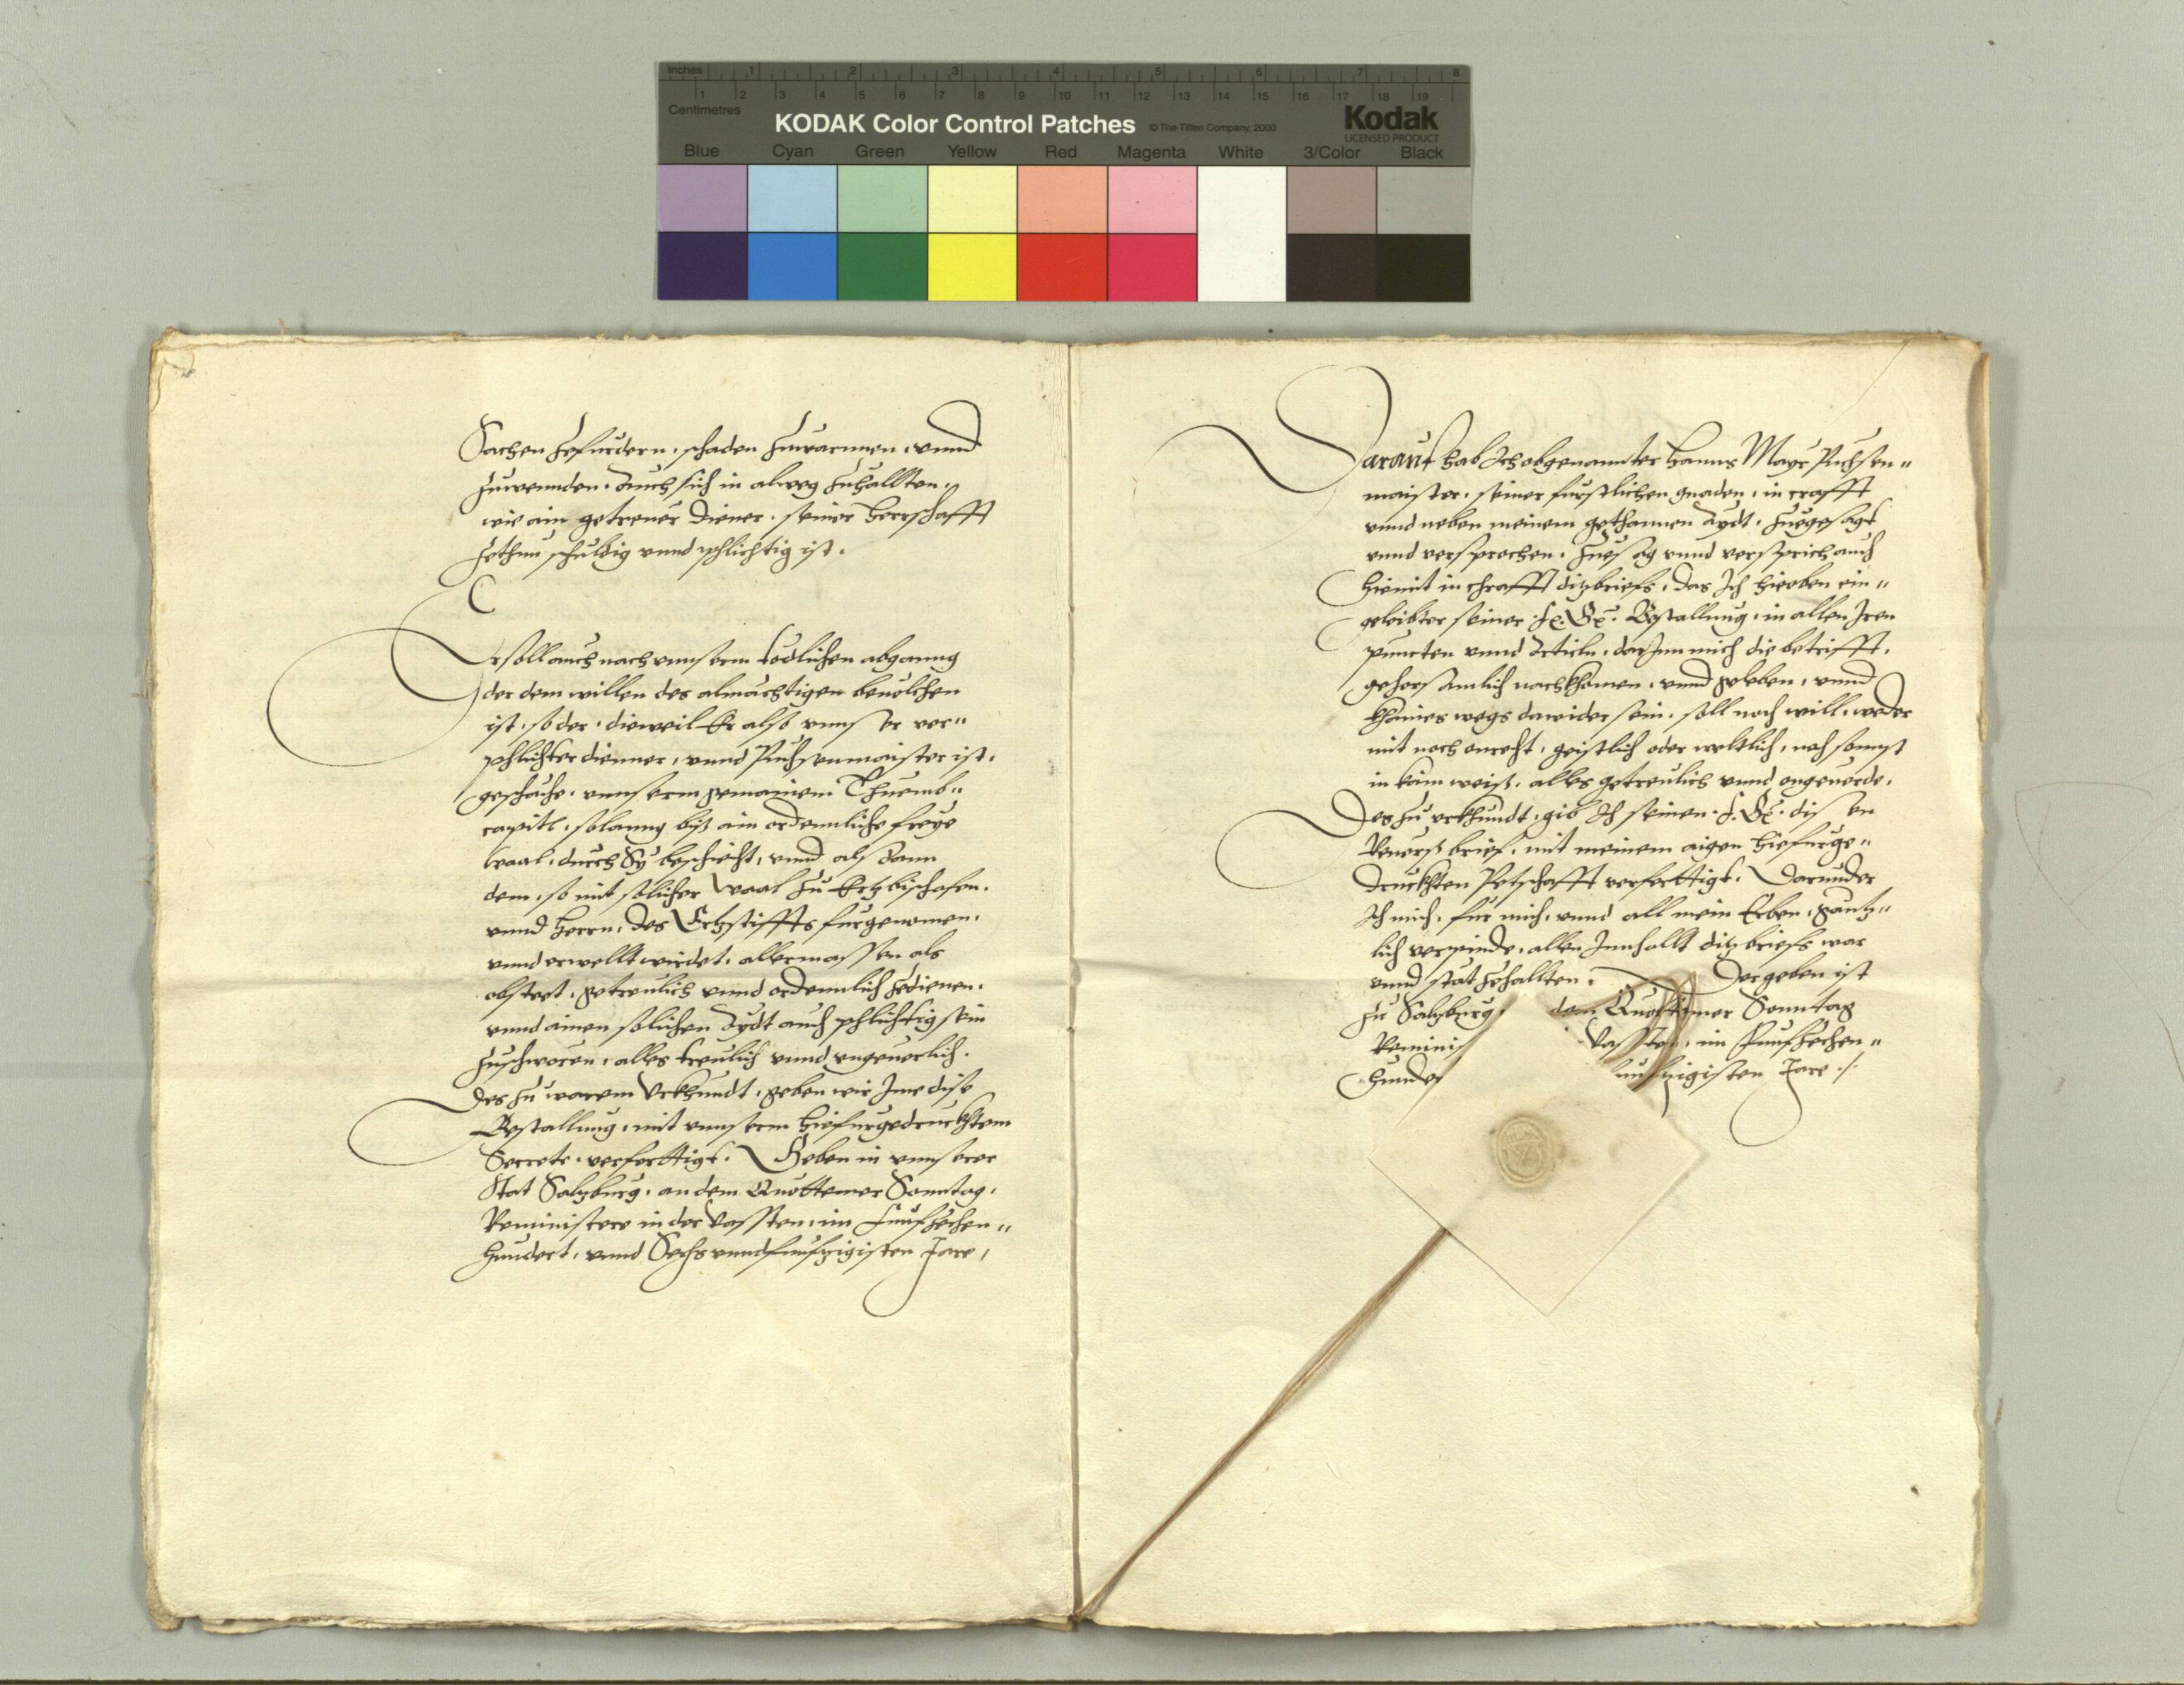 Inches 1 2 3 4 5 6 7 8
1 2 3 4 5 6 7 8 9 10 11 12 13 14 15 16 17 18 19
Centimetres
KODAK Color Control Patches © The Tiffen Company, 2000 Kodak
LICENSED PRODUCT
Blue Cyan Green Yellow Red Magenta White 3/Color Black
Sachen zefurdern, schaden zuwarnnen, vnnd
zuwennden. Auch sich in alweg zuhallten,
wie ain getreuer Diener, seiner Herrschafft
zethun schuldig vnnd phlichtig ist.
Er soll auch nach vnnserm todlichen abganng
der dem willen des almächtigen beuolchen
ist, so der, dieweil Er also vnnser ver„
phlichter dienner, vnnd Puchsenmaister ist,
geschäche, vnnserm gemainem Thuemb„
capitl, solanng biß ain ordennliche freye
waal, durch Sy beschicht, vnnd alsdann
dem, so mit solicher waal zu Ertzbischofen,
vnnd Herrn, des Ertzstiffts furgenomen,
vnnd erwellt wirdet, allermassen als
obsteet, getreulich vnnd ordennlich zedienen,
vnnd ainen solichen Aydt auch phlichtig sein
zuschworen, alles treulich vnnd vngeuerlich.
Des zu warem Vrkhundt, geben wir Ime dise
Bestallung, mit vnnserm hiefurgedruckhtem
Secrete, verferttigt. Geben in vnnserer
Stat Salzburg, an dem Quottemer Sonntag,
Reminiscere in der Vassten, im Funfzehen„
hundert, vnnd Sechsvnndfunfzigisten Jare,
Darauf hab Ich obgenannter Hanns Mayr Puchsen„
maister, seiner furstlichen gnaden, in crafft
vnnd neben meinem gethannen Aydt, zuegesagt
vnnd versprochen. Zuesag vnnd versprich auch
hiemit in chrafft ditzbriefs, das Ich hieoben ein„
geleibter seiner .fr. Gn. Bestallung, in allen Iren
puncten vnnd Articln, darInn mich die betrifft,
gehorsamlich nachkhomen, vnnd geleben, vnnd
khaines wegs dawider sein, soll noch will, weder
mit noch onrecht, geistlich oder weltlich, noch sonnst
in kain weiß, alles getreulich vnnd ongeuerde.
Des zu vrkhundt, gib Ich seinen .f. Gn. disen
Reuerß brief, mit meinem aigen hiefurge„
druckhten Petschafft verferttigt. Darunder
Ich mich, fur mich, vnnd all mein Erben, gantz„
lich verpinde, allen Innhallt ditzbriefs war
vnnd stät zehallten. Der geben ist
zu Salzburg, dem Quottemer Sonntag
Reminis Vassten, im Funfzehen„
hunder funfzigisten Jare ./.